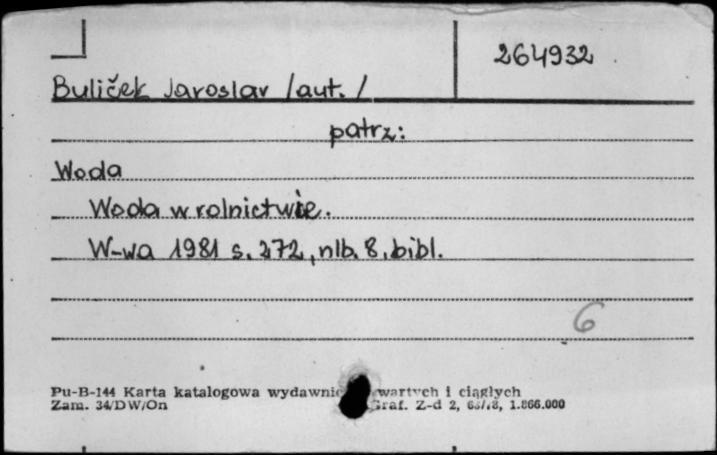 264932
Buliček Jaroslav /aut./
patrz:
Woda
Woda w rolnictwie.
W-wa 1981 s. 272, nlb. 8, bibl.
6
Pu-B-144 Karta katalogowa wydawnic wartych i ciągłych
Zam. 34/DW/On Graf. Z-d 2, 1.866.000